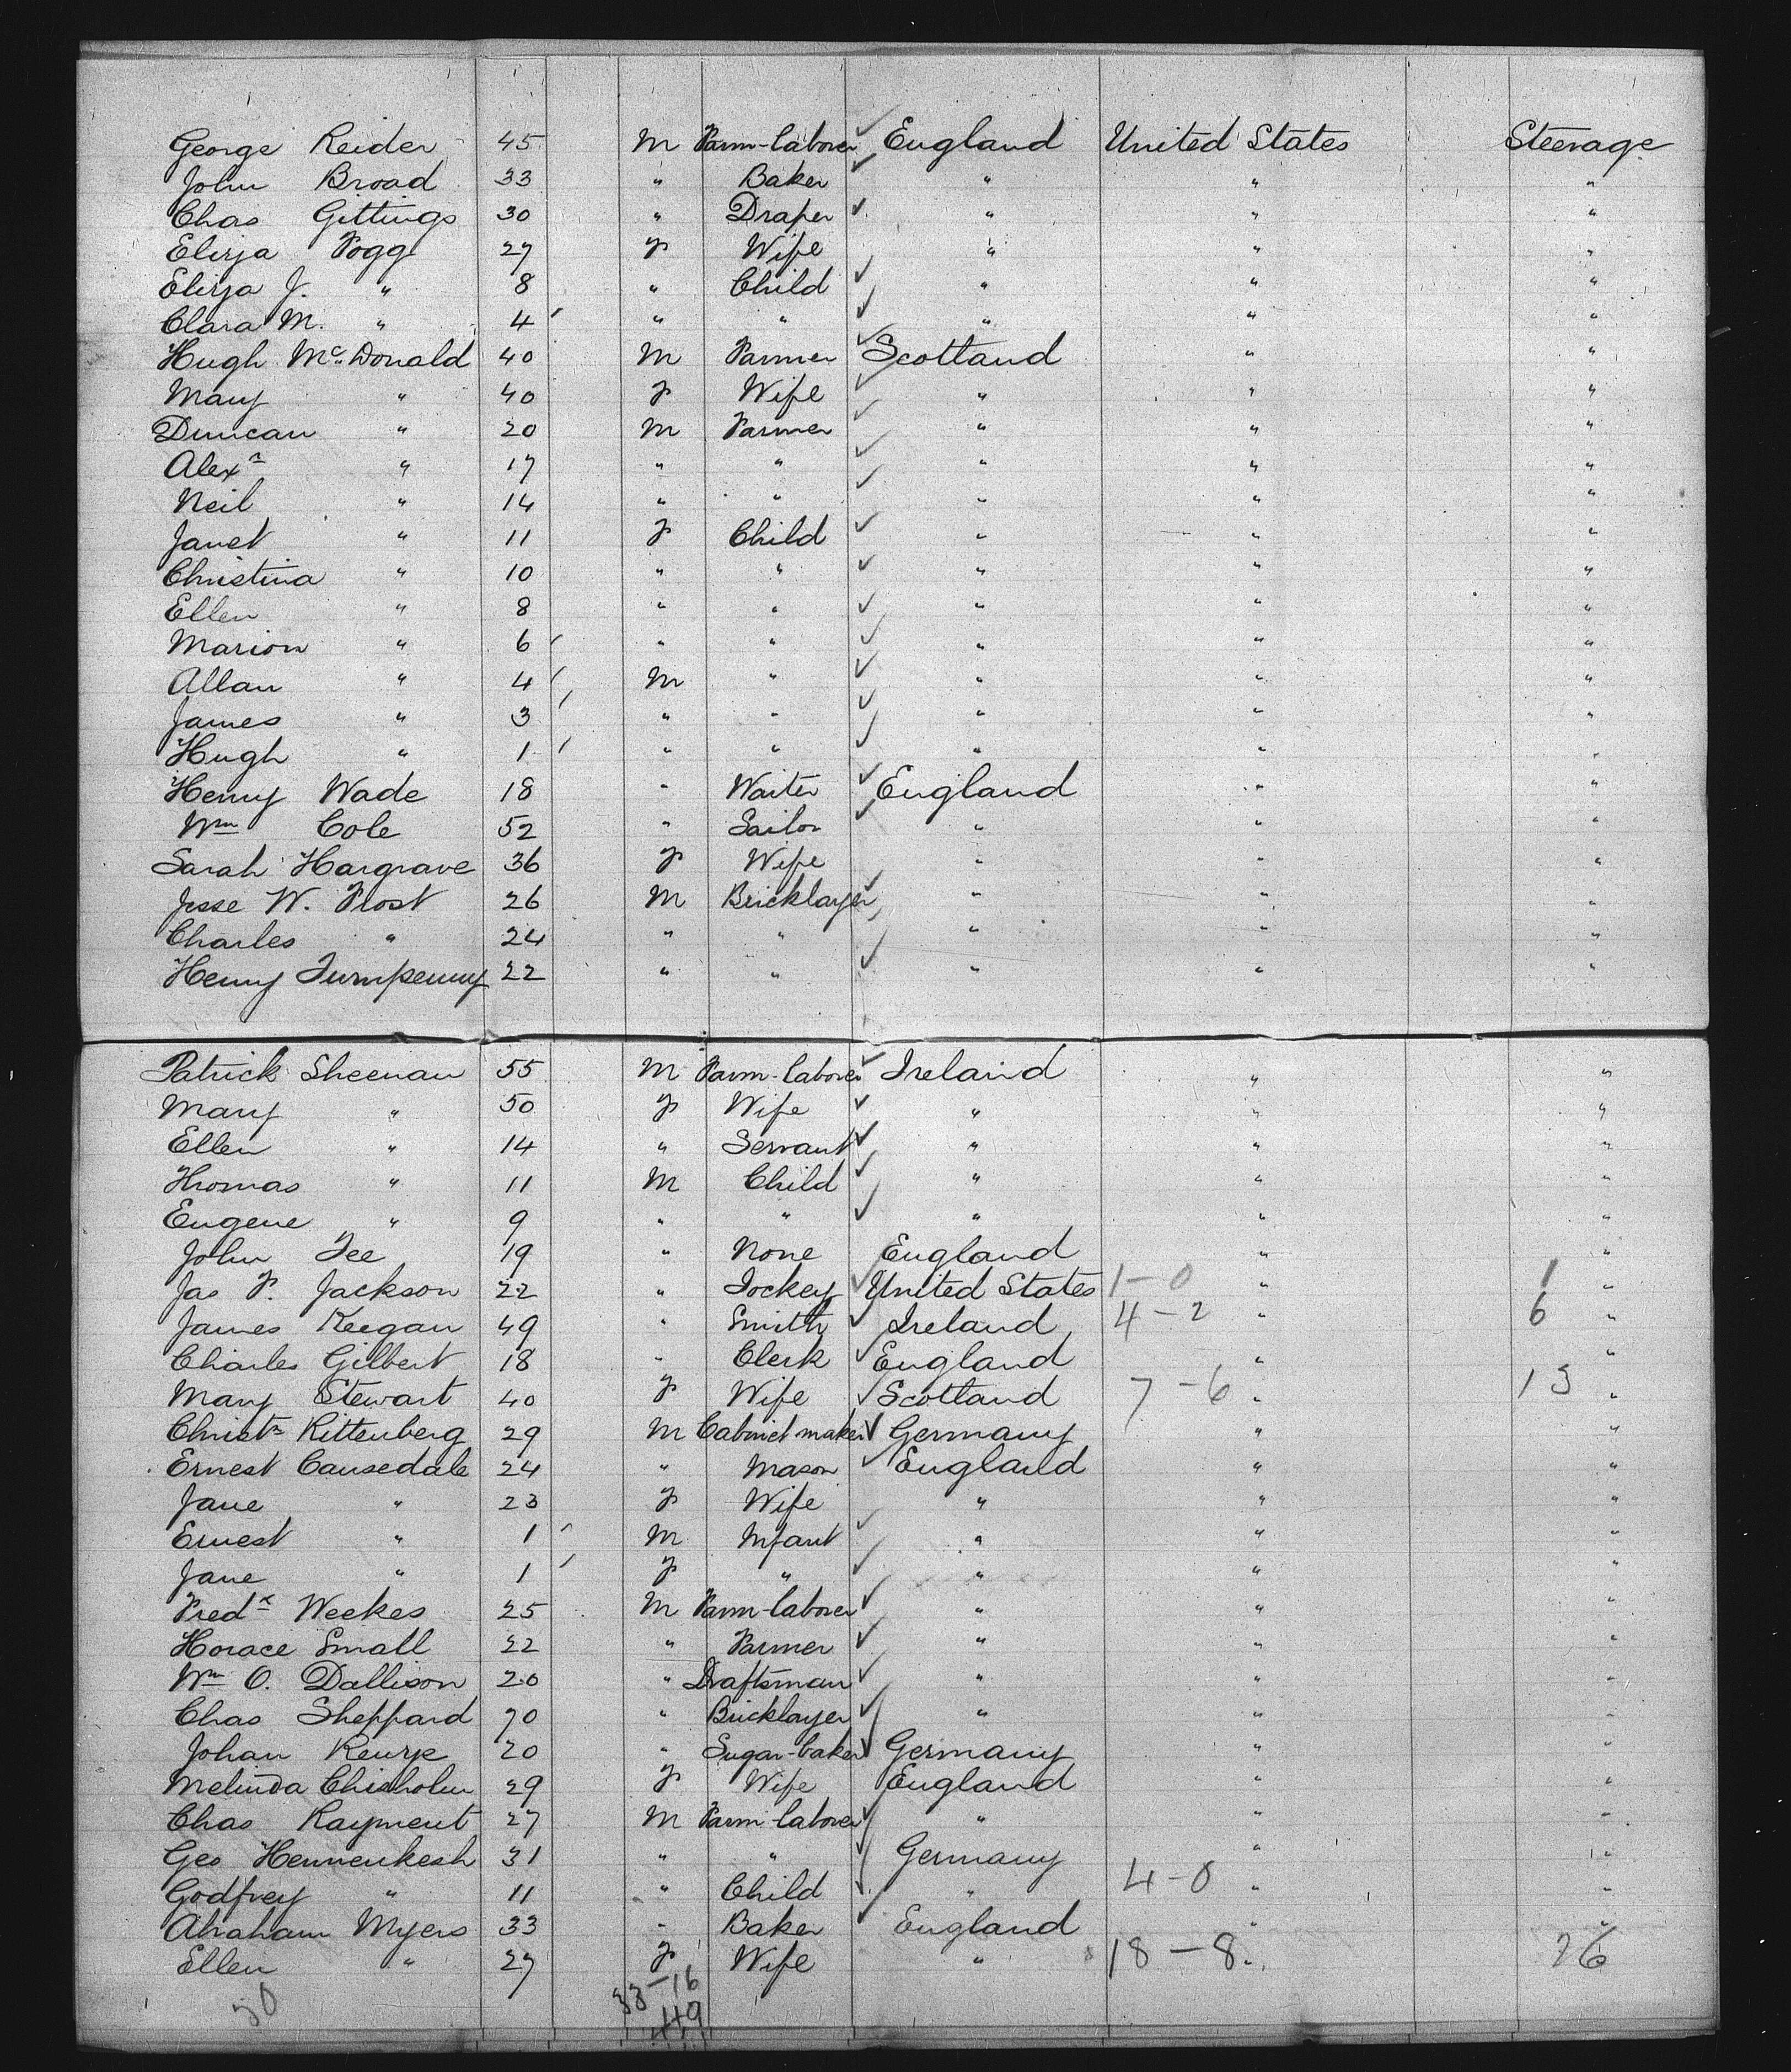 George Reider 45 M Farm-laborer England United States Steerage
John Broad 33 " Baker " " "
Chas Gittings 30 " Draper " " "
Eliza Fogg 27 F Wife " " "
Eliza J. " 8 " Child " " "
Clara M. " 4 " " " " "
Hugh McDonald 40 M Farmer Scotland " "
Mary " 40 F Wife " " "
Duncan " 20 M Farmer " " "
Alexr " 17 " " " " "
Neil " 14 " " " " "
Janet " 11 F Child " " "
Christina " 10 " " " " "
Ellen " 8 " " " " "
Marion " 6 " " " " "
Allan " 4 M " " " "
James " 3 " " " " "
Hugh " 1 " " " " "
Henry Wade 18 " Waiter England " "
Wm Cole 52 " Sailor " " "
Sarah Hargrave 36 F Wife " " "
Jesse W. Frost 26 M Bricklayer " " "
Charles " 24 " " " " "
Henry Turnpenny 22 " " " " "
Patrick Sheenan 55 M Farm-laborer Ireland " "
Mary " 50 F Wife " " "
Ellen " 14 " Servant " " "
Thomas " 11 M Child " " "
Eugene " 9 " " " " "
John Tee 19 " None England " "
Jas F. Jackson 22 " Jockey United States 1-0 " 1 "
James Keegan 49 " Smith Ireland 4-2 " 6 "
Charles Gilbert 18 " Clerk England " "
Mary Stewart 40 F Wife Scotland 7-6 " 13 "
Christn Rittenberg 29 M Cabinet maker Germany " "
Ernest Causedale 24 " Mason England " "
Jane " 23 F Wife " " "
Ernest " 1 M Infant " " "
Jane " 1 F " " " "
Fredk Weekes 25 M Farm-laborer " " "
Horace Small 22 " Farmer " " "
Wm O. Dallison 20 " Draftsman " " "
Chas Sheppard 70 " Bricklayer " " "
Johan 20 " Sugar-baker Germany " "
Melinda Chisholm 29 F Wife England " "
Chas Rayment 27 M Farm-laborer " " "
Geo Hennenkesh 31 " " Germany " "
Godfrey " 11 " Child " 4-0 " "
Abraham Myers 33 " Baker England " "
Ellen " 27 F Wife " 18-8 " 26
50 33-16
449